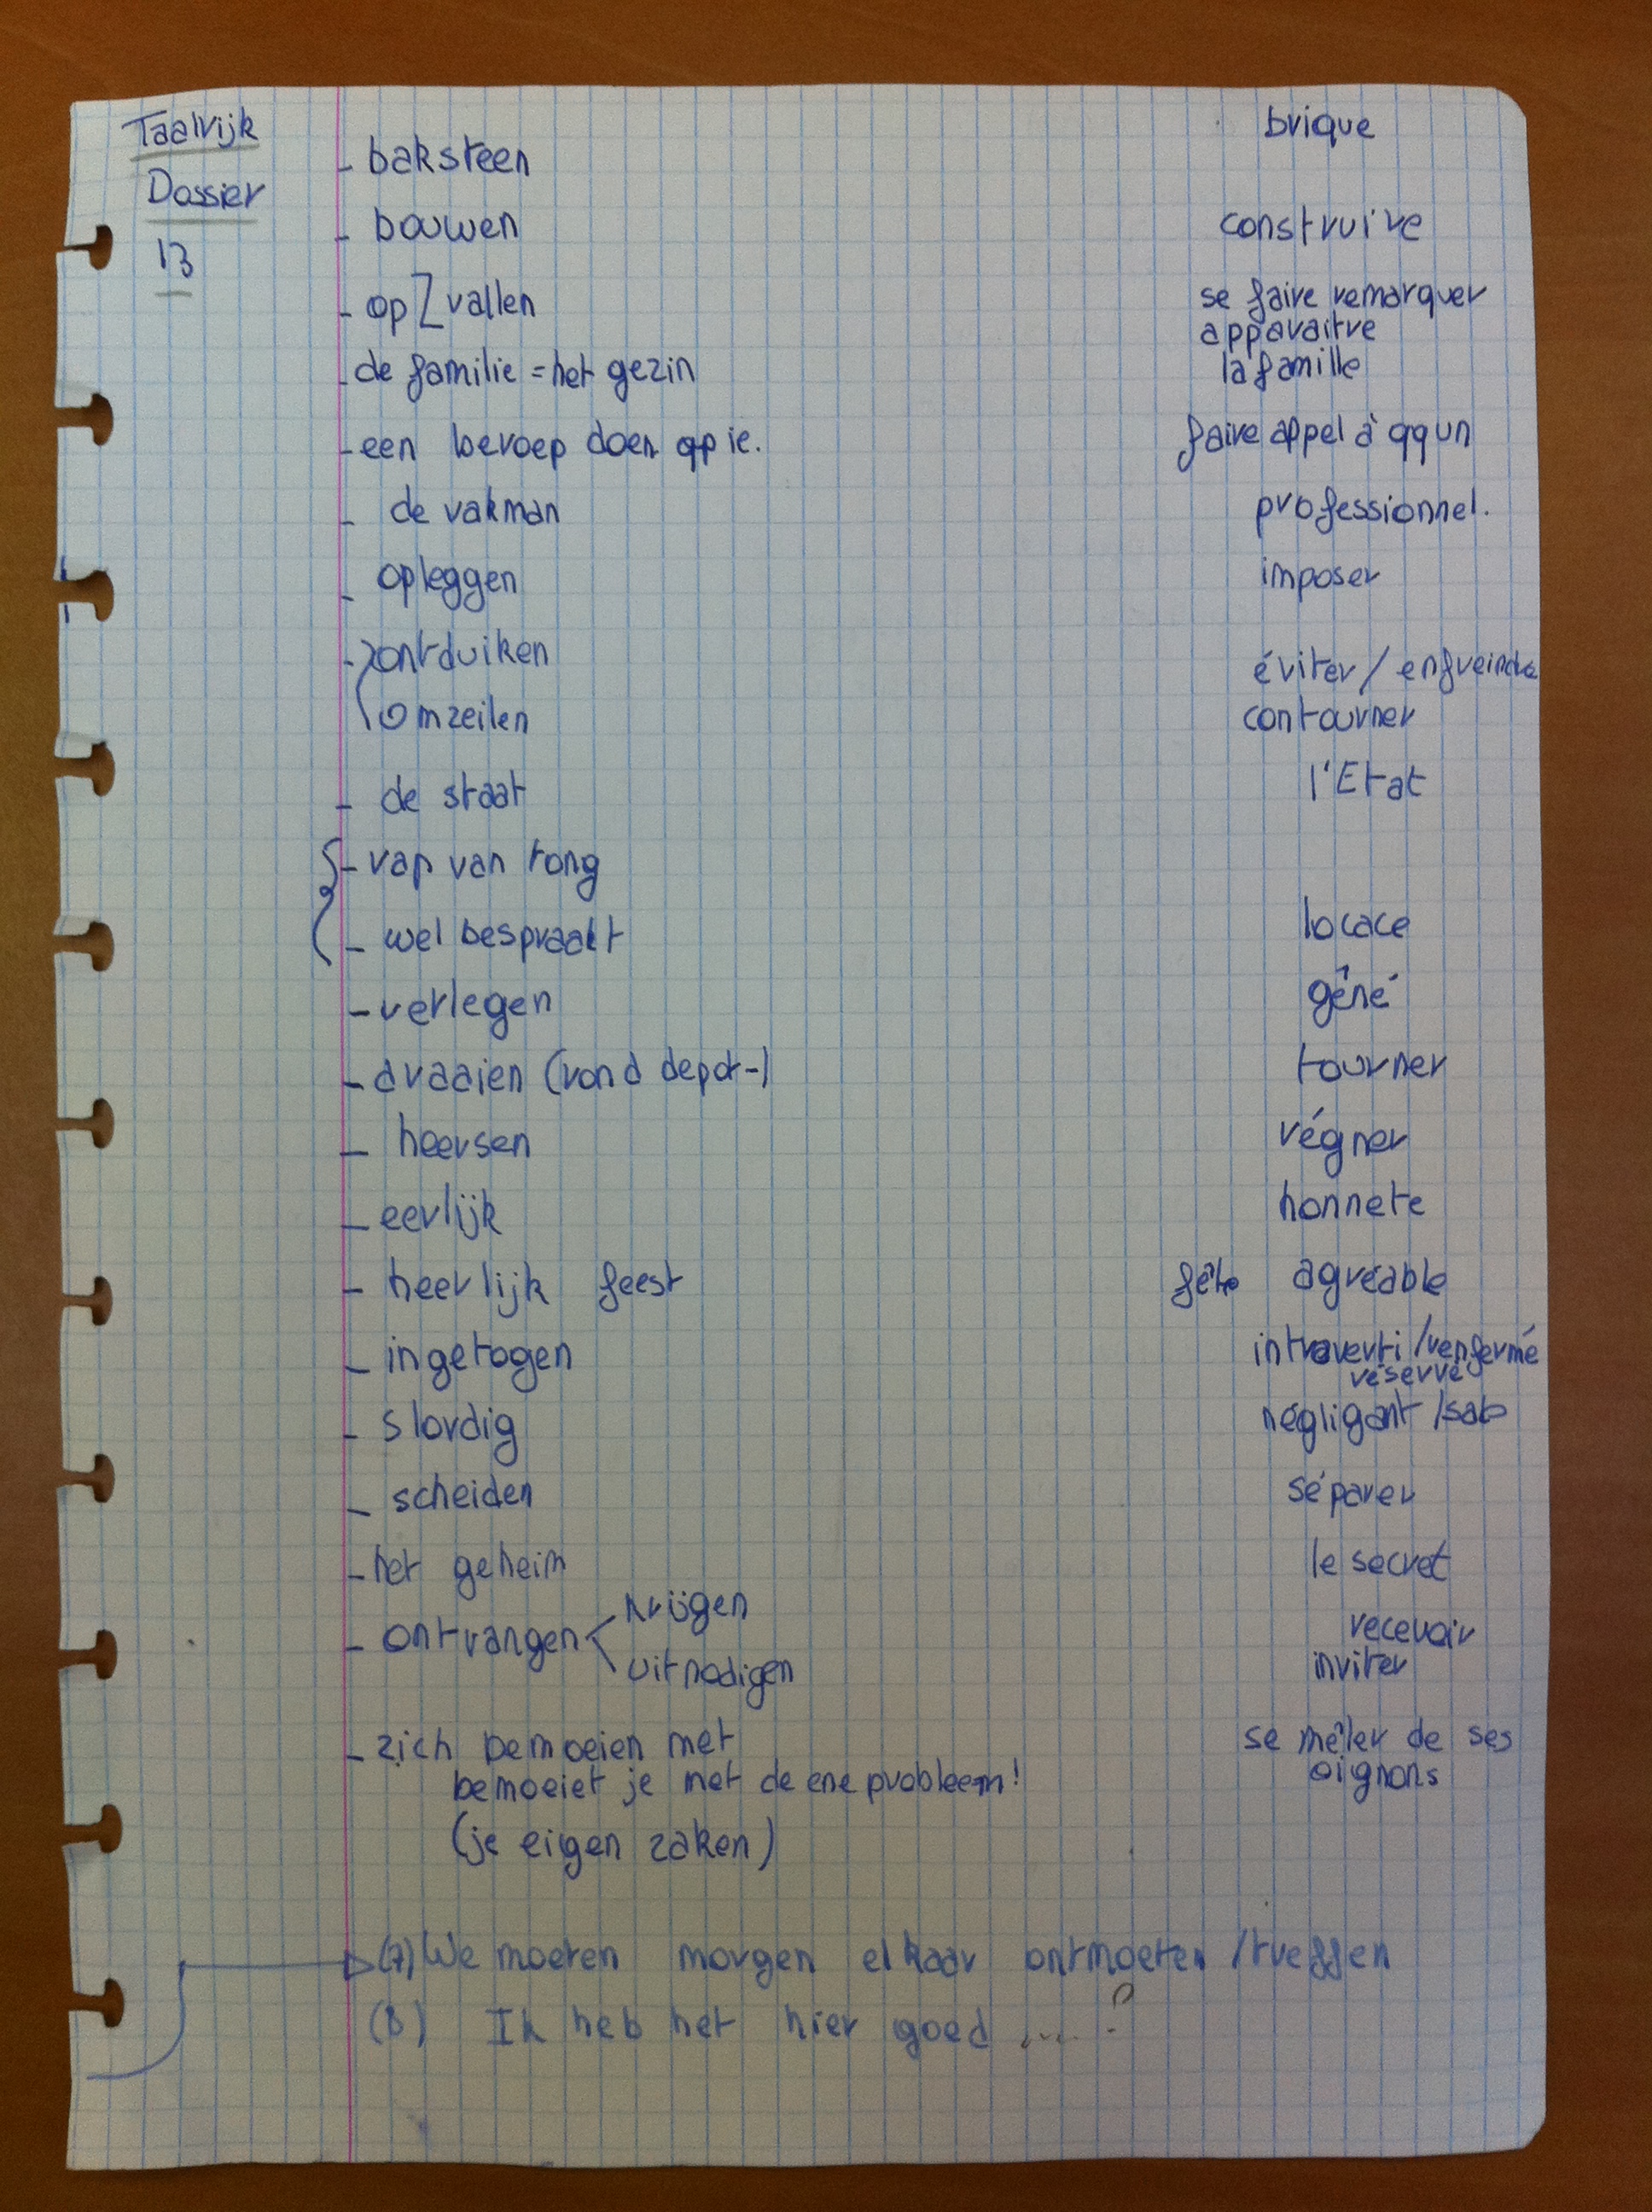 Taalrijk
Dossier
13
- baksteen brique
- bouwen construire
- op[vallen se faire remarquer
apparaitre
- de familie = het gezin la famille
- een beroep doen op ie. faire appel à qqun
- de vakman professionnel.
- opleggen imposer
- ontduiken éviter / enfreindre
omzeilen contourner
- de staat l'Etat
- rap van tong
- wel bespraakt locace
- verlegen gêné
- draaien (rond depot-) tourner
- heersen régner
- eerlijk honnete
- heerlijk feest fête agréable
- ingetogen intraverti / renfermé
réservé
- slordig négligant / sale
- scheiden séparer
- het geheim le secret
- ontvangen < krijgen recevoir
uitnodigen inviter
- zich bemoeien met se mêler de ses
bemoeiet je met de ene probleem! oignons
(je eigen zaken)
(7) We moeten morgen elkaar ontmoeten / treffen
(8) Ik heb het hier goed .... ?